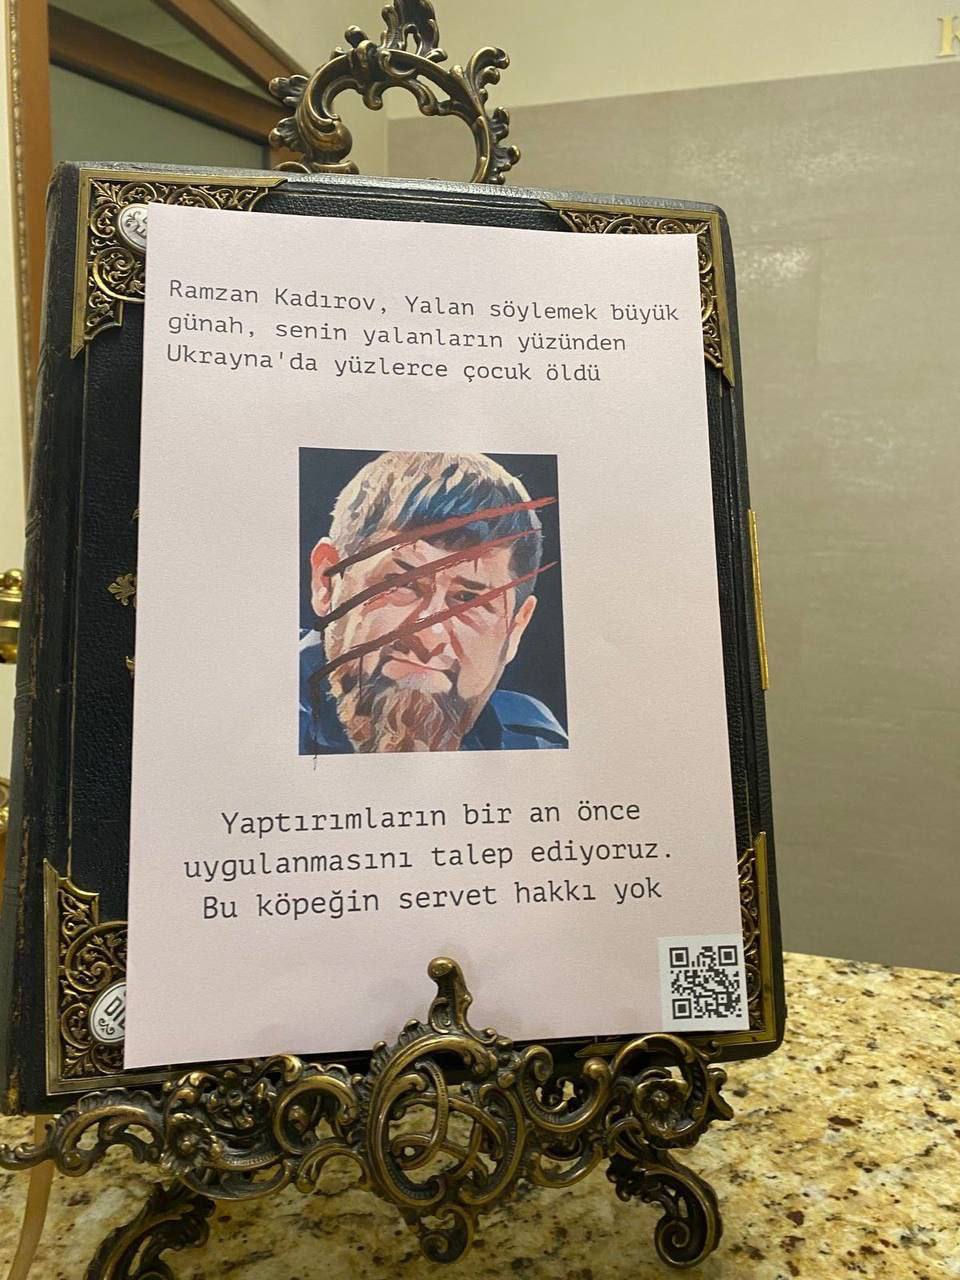 Ramzan Kadırov, Yalan söylemek büyük
günah, senin yalanların yüzünden
Ukrayna'da yüzlerce çocuk öldü
Yaptırımların bir an önce
uygulanmasını talep ediyoruz.
Bu köpeğin servet hakkı yok